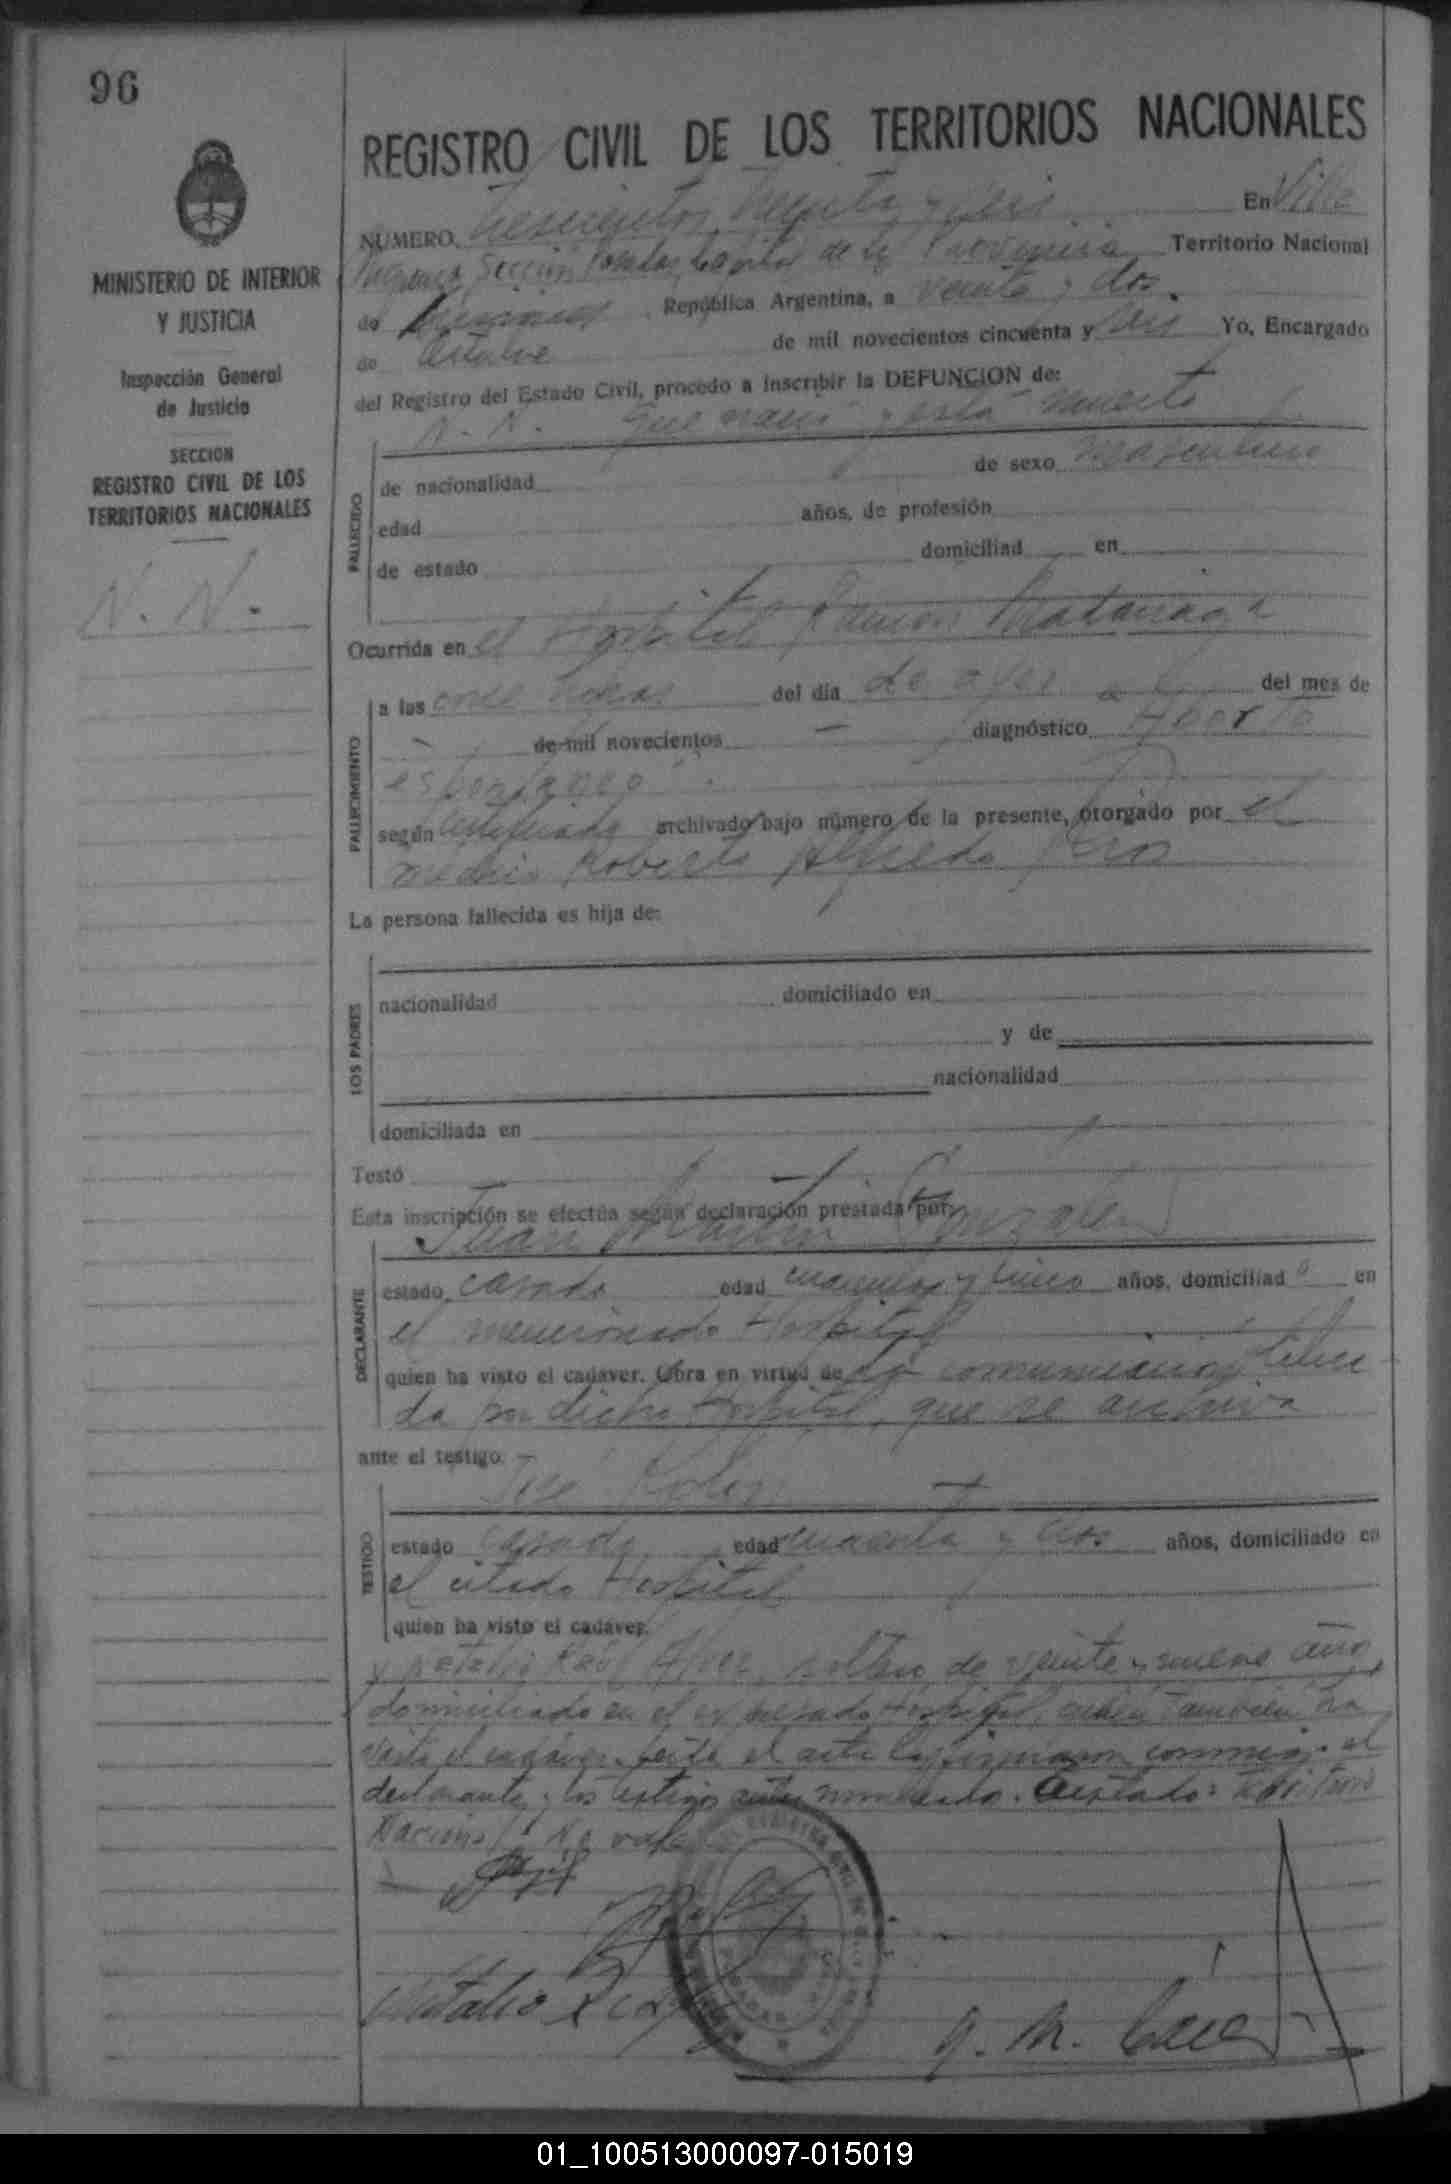 96
REGISTRO CIVIL DE LOS TERRITORIOS NACIONALES
MINISTERIO DE INTERIOR
Y JUSTICIA
Inspección General
de Justicia
SECCION
REGISTRO CIVIL DE LOS
TERRITORIOS NACIONALES
N. N.
NUMERO Trescientos treinta y seis En Villa
Sección Posadas, Capital de la Provincia Territorio Nacional
de Misiones República Argentina, a veinte y dos
de Octubre de mil novecientos cincuenta y seis Yo, Encargado
del Registro del Estado Civil, procedo a inscribir la DEFUNCION de:
N. N. que nació y está muerto
FALLECIDO
de nacionalidad de sexo masculino
edad años, de profesión
de estado domiciliad en
Ocurrida en el Hospital Ramón Madariaga
FALLECIMIENTO
a las once horas del día de ayer del mes de
de mil novecientos diagnóstico Aborto
espontaneo
según certificado archivado bajo número de la presente, otorgado por el
médico Roberto Alfredo
La persona fallecida es hija de:
LOS PADRES
nacionalidad domiciliado en
y de
nacionalidad
domiciliada en
Testó
Esta inscripción se efectúa según declaración prestada por:
Juan Martín González
DECLARANTE
estado casado edad cuarenta y cinco años, domiciliado en
el mencionado Hospital
quien ha visto el cadáver. Obra en virtud de la comunicación
da por dicho Hospital, que se archiva
ante el testigo
José
TESTIGO
estado casado edad cuarenta y dos años, domiciliado en
el citado Hospital
quien ha visto el cadáver.
y Natalio soltero de veinte y nueve años
domiciliado en el expresado Hospital, quien también ha
visto el cadáver. Leída el acta la firmaron conmigo el
declarante y los testigos nombrados. Testado: Territorio
Nacional No vale
Natalio
01_100513000097-015019